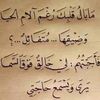 مابال قلبك رغم آلام الحيا
وضيقها ... متفائل ؟
فأجبتهم : لي خالق فوق السما
يرى ويسمع حاجتي